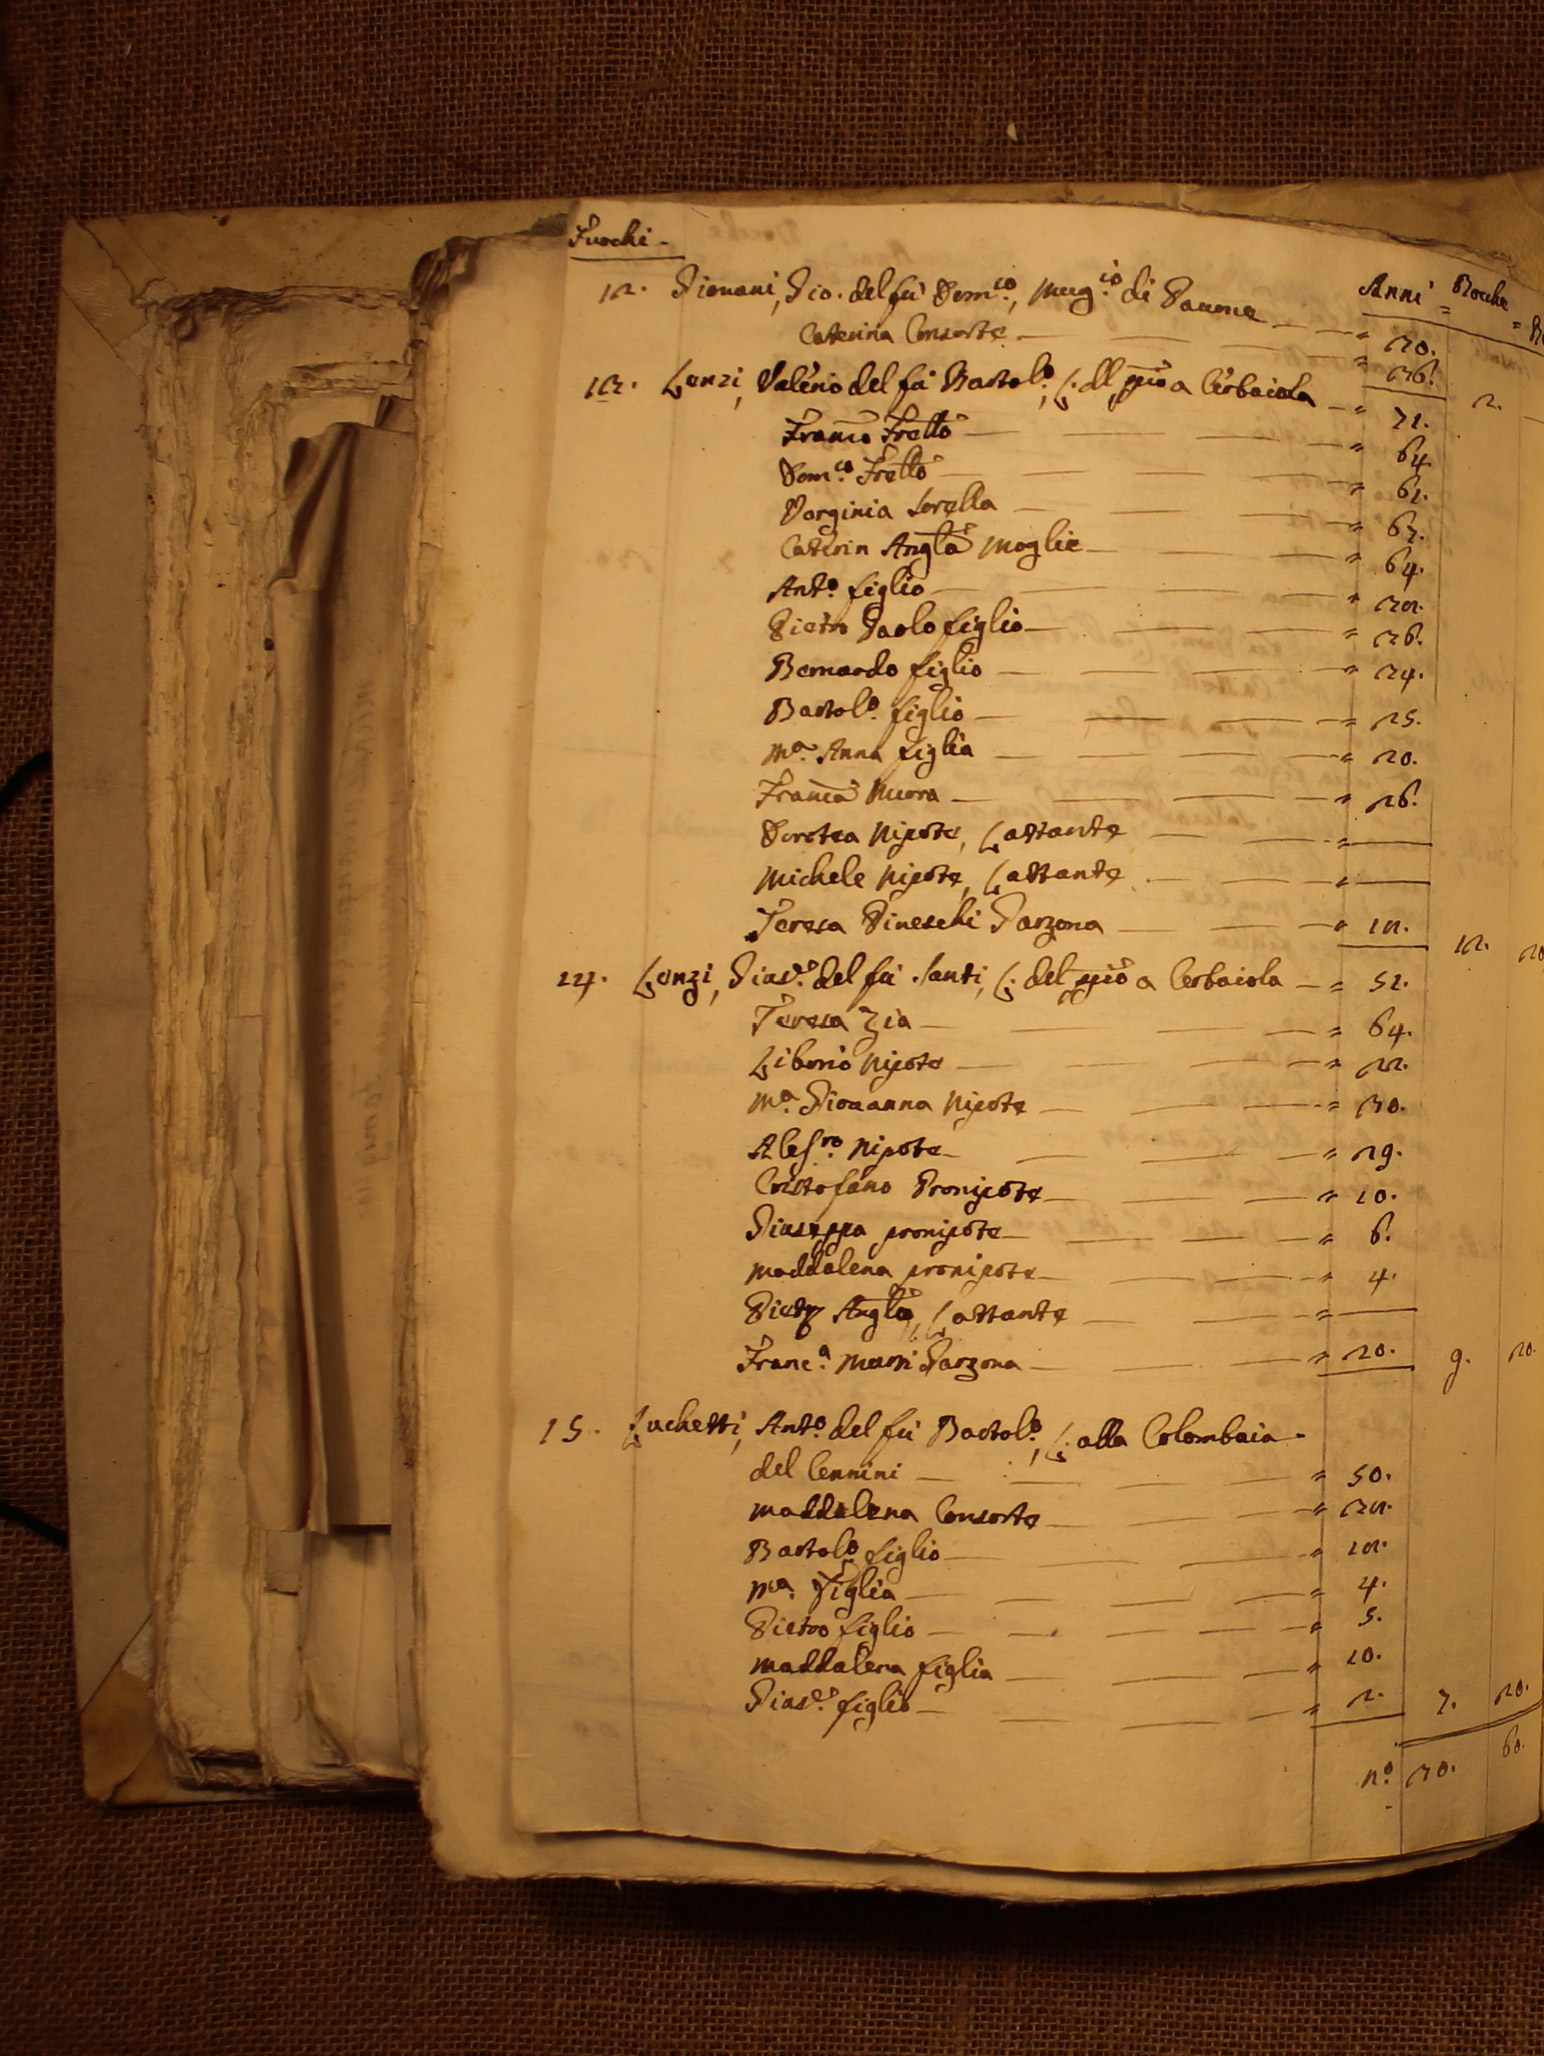 Fuochi -
Anni = Bocche =
12. Giovani, Gio. del fù Dom.co, Mug.io di Paume — 30.
Caterina Consorte — 36. 2.
13. Lenzi, Valerio del fù Bartol.o, L: del pio a Cerbaiola — 71.
Franco Frello — 64.
Dom.co Frello — 61.
Verginia Sorella — 67.
Caterin Angla Moglie — 64.
Ant.o figlio — 32.
Pietro Paolo figlio — 36.
Bernardo figlio — 34.
Bartol.o figlio — 25.
M.a Anna figlia — 20.
Franca Nuora — 26.
Dorotea Nipote, Lattante —
Michele Nipote, Lattante —
Teresa Pineschi Garzona — 12. 12.
14. Lenzi, Gias.e del fù Santi, L: del pio a Cerbaiola — 51.
Teresa Zia — 64.
Liborio Nipote — 22.
M.a Giovanna Nipote — 30.
Aless.ro Nipote — 29.
Cristofano Pronipote — 10.
Giuseppa pronipote — 6.
Maddalena pronipote — 4.
Angla, Lattante —
Franc.a Garzona — 20. 9. 20.
15. Luchetti, Ant.o del fù Bartol.o, L: alla Colombaia
del Cennini — 50.
Maddalena Consorte — 32.
Bartol.o figlio — 12.
M.a Figlia — 4.
Pietro figlio — 5.
Maddalena figlia — 10.
Gias.e figlio — 2. 7. 20.
n.o 30. 60.